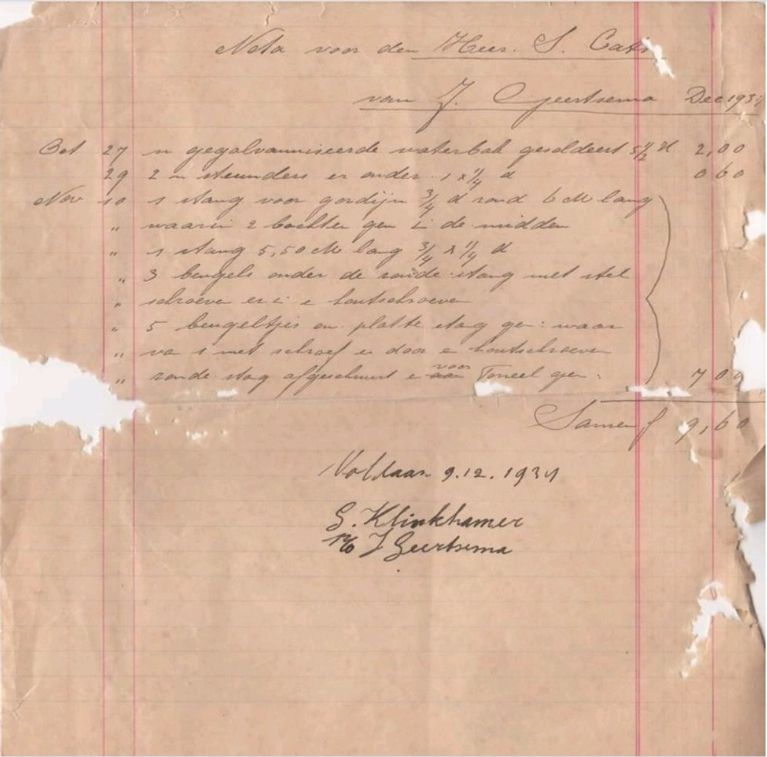 Nota voor den Heer. S. Cats
van J. Geertsema Dec 1934
Oct 27 'n gegalvanniseerde waterbak gesoldeert 5½ d 2,00
29 2 'n steunders er onder 1 x ¼ d 0 60
Nov 10 1 stang voor gordijn ¾ d rond 6 M lang
" waarin 2 bochten gen in de midden
" 1 stang 5,50 M lang ¾ x ¼ d
" 3 beugels onder de ronde stang met stel
" schroeven en houtschroeven
" 5 beugeltjes en platte stag gen: waar
" va 1 met schroef door houtschroeven
" ronde stag afgeschuurt voor aan Toneel gen. 7 00
Samen f 9,60
Voldaan 9.12.1934
G. Klinkhamer
J Geertsema